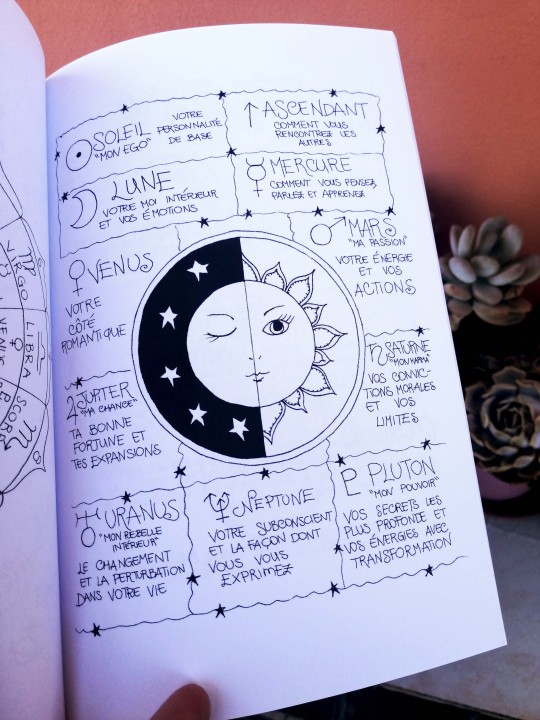 SOLEIL
"MON EGO"
VOTRE
PERSONNALITÉ
DE BASE
ASCENDANT
COMMENT VOUS
RENCONTREZ LES
AUTRES
LUNE
VOTRE MOI INTÉRIEUR
ET VOS ÉMOTIONS
MERCURE
COMMENT VOUS PENSEZ,
PARLEZ ET APPRENEZ
VENUS
VOTRE
CÔTÉ
ROMANTIQUE
MARS
"MA PASSION"
VOTRE ÉNERGIE
ET VOS
ACTIONS
JUPITER
"MA CHANCE"
TA BONNE
FORTUNE ET
TES EXPANSIONS
SATURNE
"MON KARMA"
VOS CONVIC-
TIONS MORALES
ET VOS
LIMITES
URANUS
"MON REBELLE
INTÉRIEUR"
LE CHANGEMENT
ET LA PERTURBATION
DANS VOTRE VIE
NEPTUNE
VOTRE SUBCONSCIENT
ET LA FAÇON DONT
VOUS VOUS
EXPRIMEZ
PLUTON
"MON POUVOIR"
VOS SECRETS LES
PLUS PROFONDS ET
VOS ÉNERGIES AVEC
TRANSFORMATION
VIRGO
LIBRA